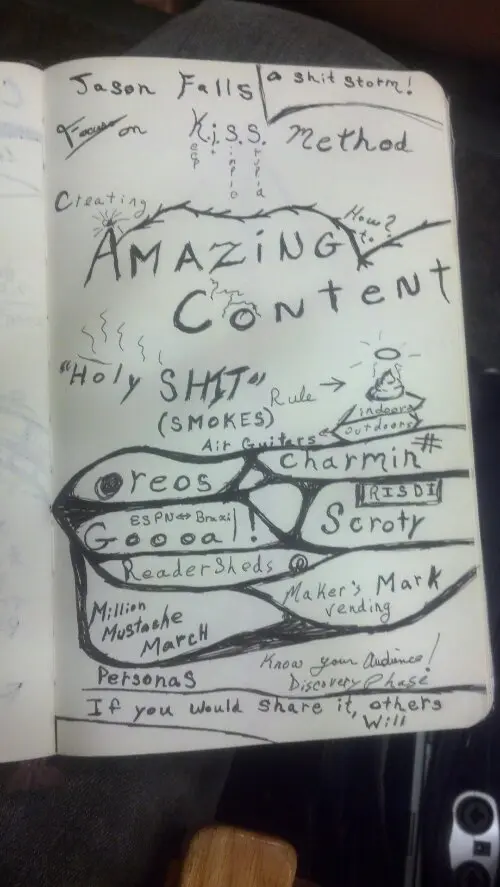 Jason Falls
a shit storm!
Focus on K.i.S.S. Method
eep
t
imple
tupid
Creating
How? to.
AMAZING
CONTENT
"Holy SHIT"
(SMOKES)
Rule →
indoors
outdoors
Air Guitars
Oreos
Charmin #
ESPN ↔ Brazil
Goooal!
RISDI
Scroty
ReaderSheds @
Maker's Mark
vending
Million
Mustache
March
Know your Audience!
Discovery Phase
Personas
If you would share it, others
Will